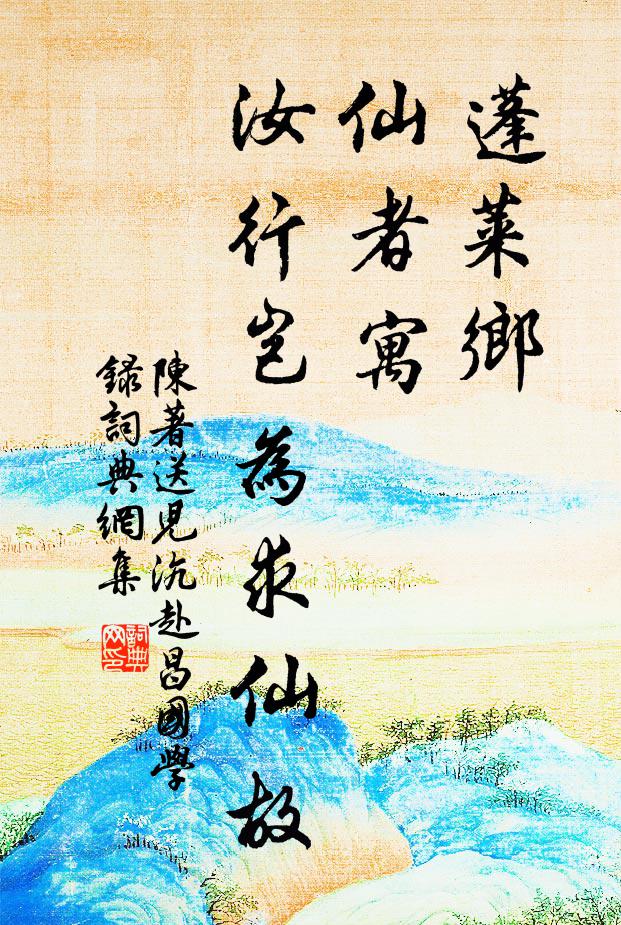 蓬萊鄉
仙者寓
汝行豈為求仙故
陳著送兒沆赴昌國學
錄詞典網集
詞典網印